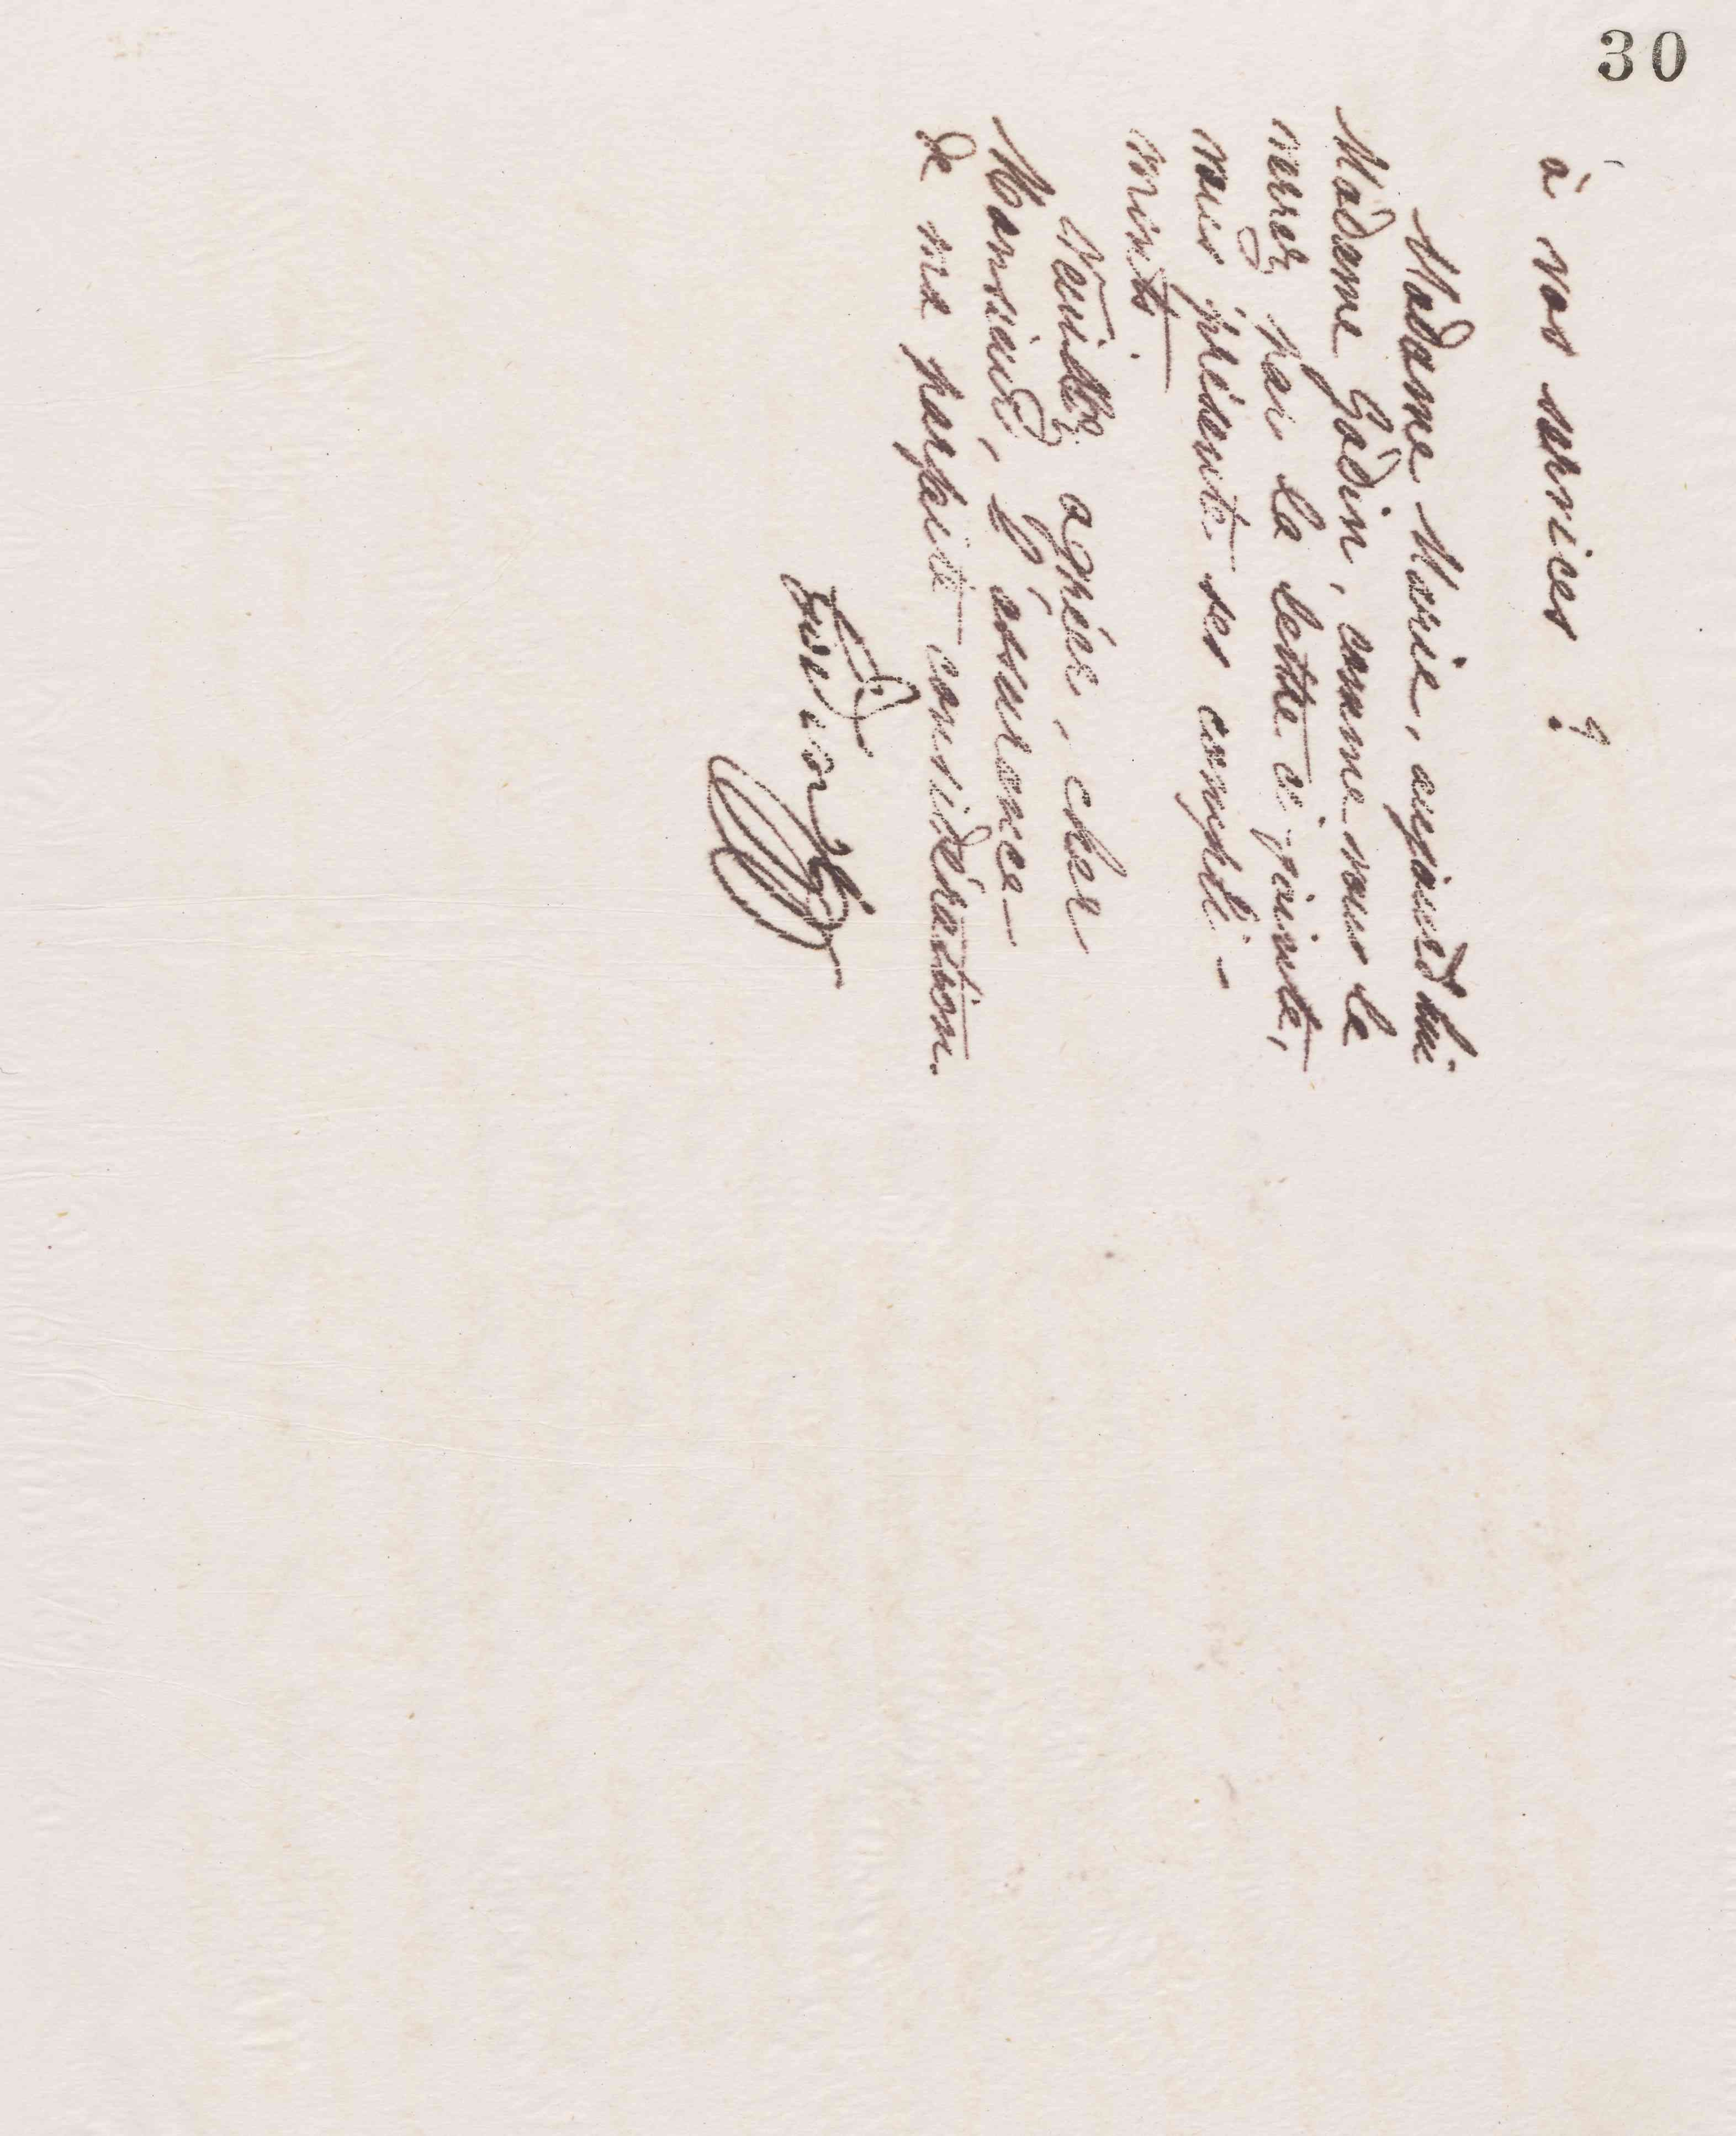 30
à vos services ?
Madame Marie, aujourd'hui
Madame Godin, comme vous le
verrez par la lettre ci-jointe,
vous présente ses compli-
ments
Veuillez agréer, cher
Monsieur, l'assurance
de ma parfaite considération.
Godin